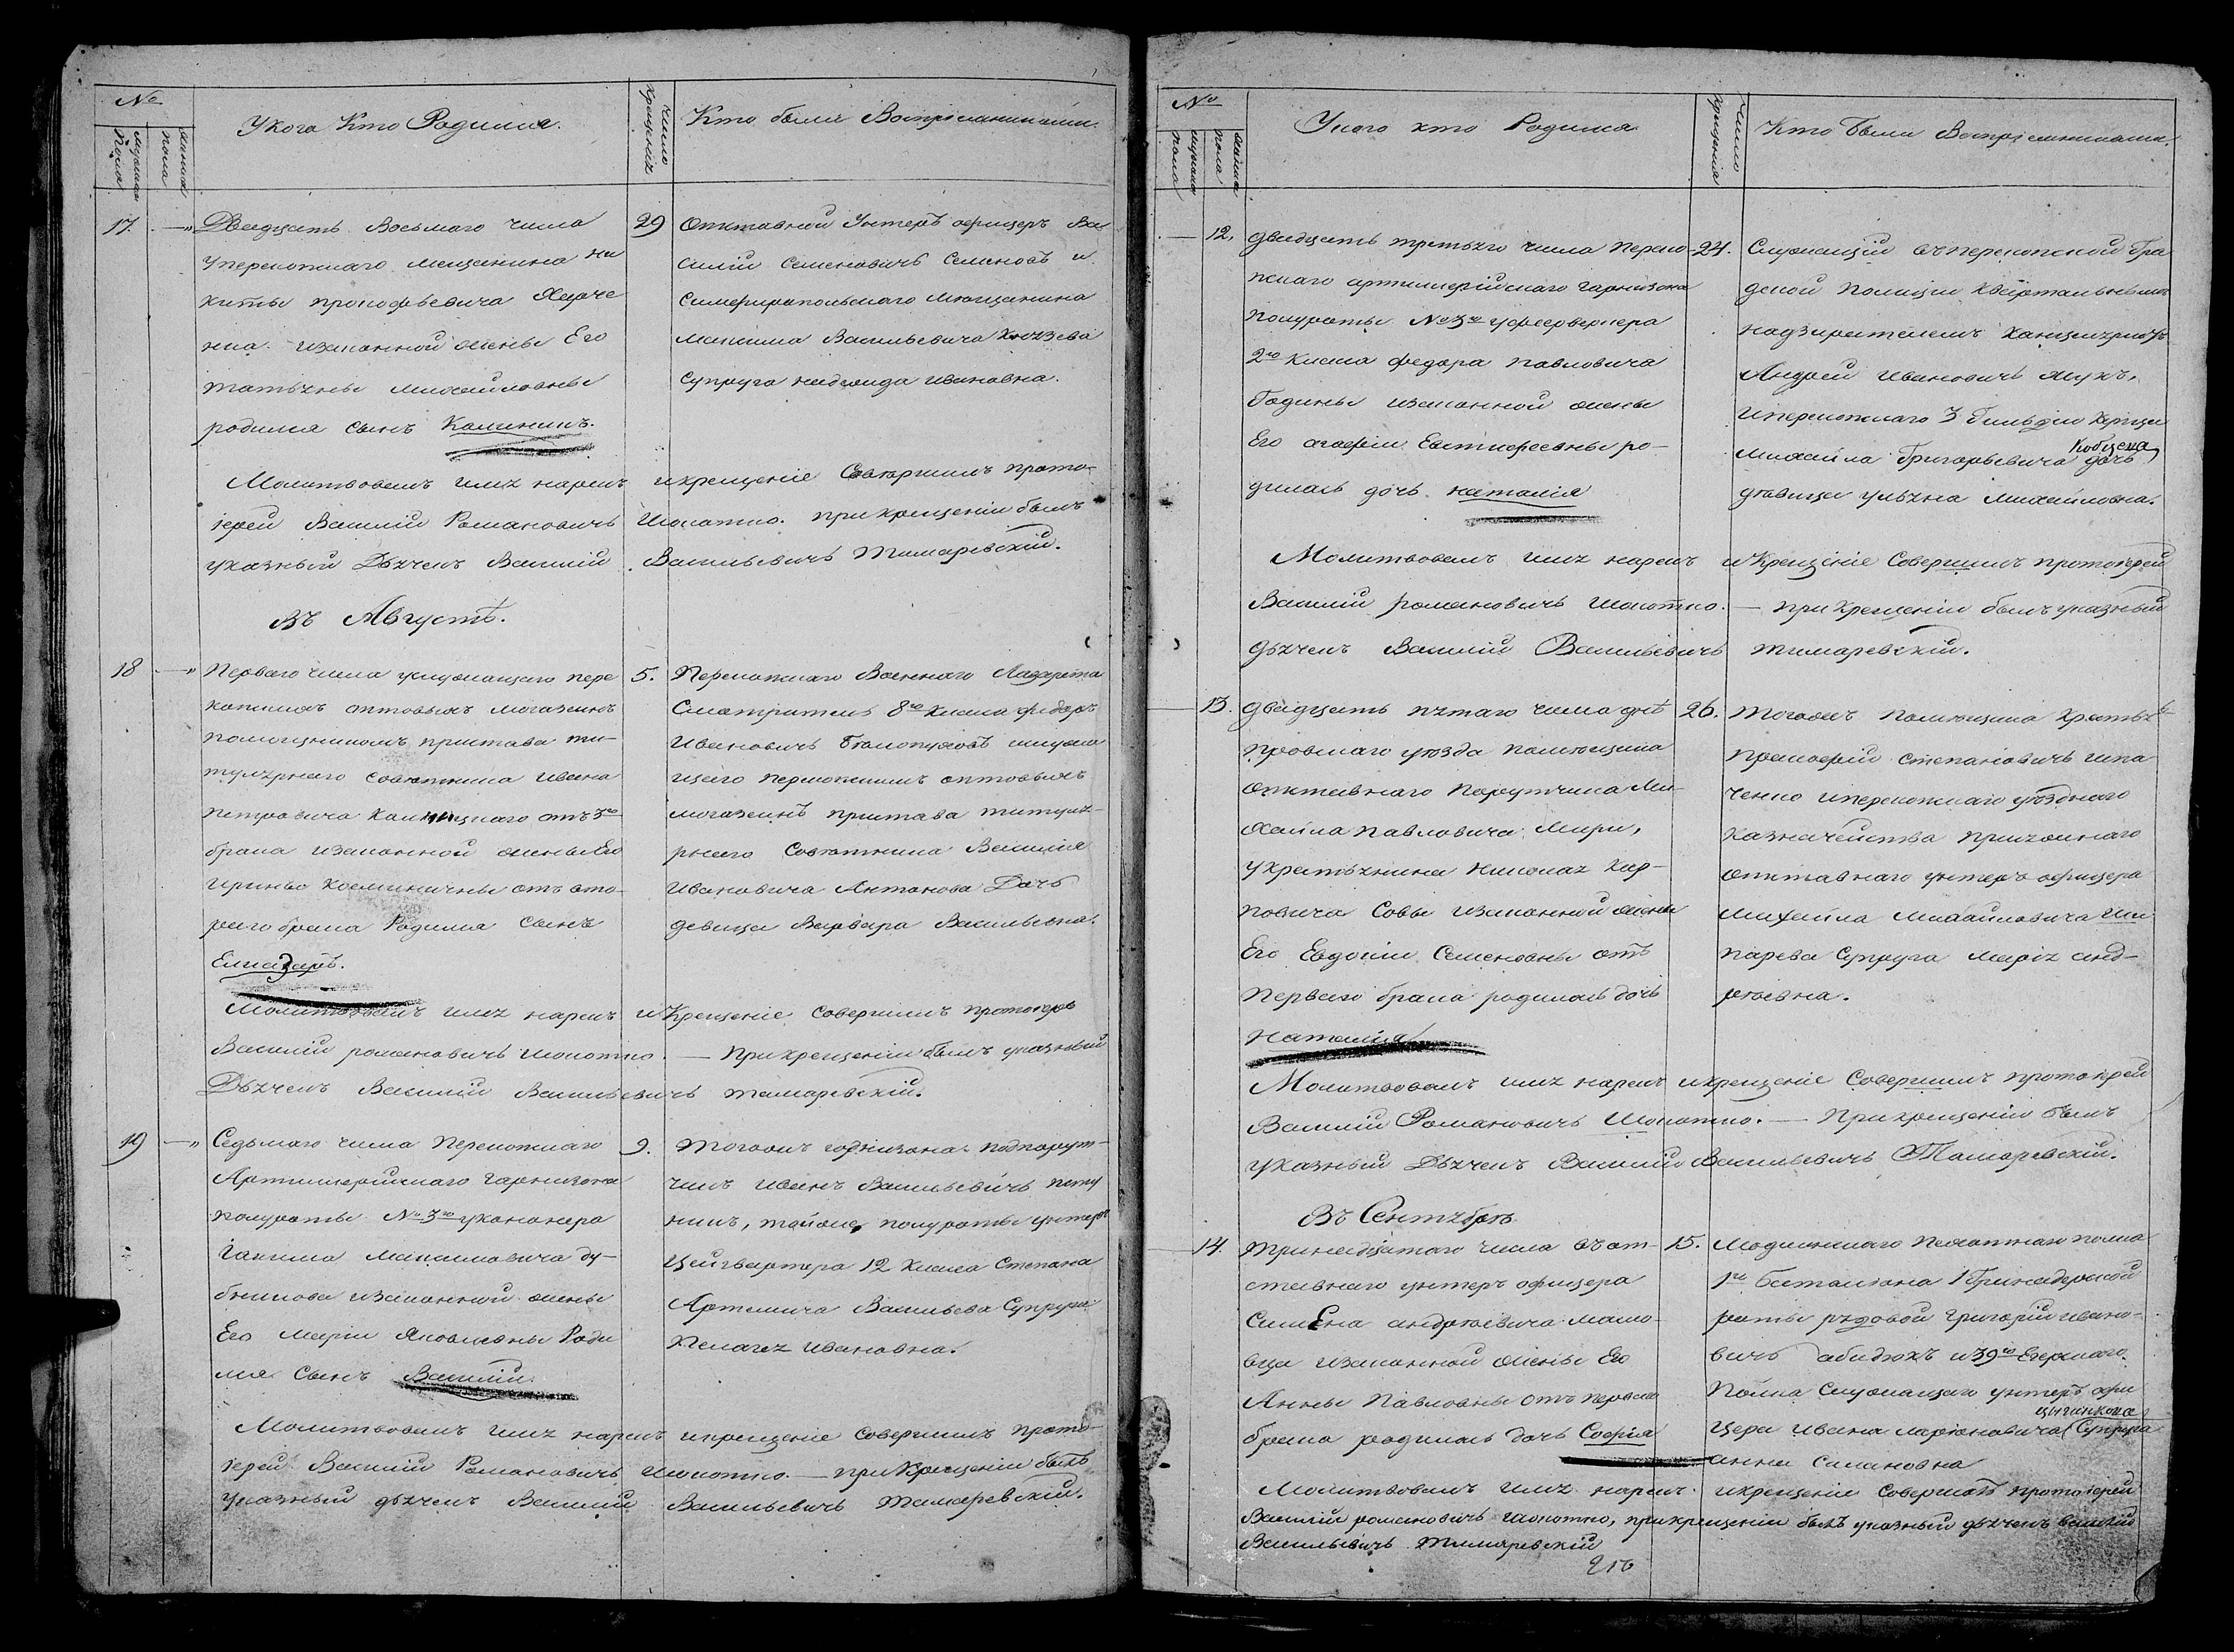 №
мужеска пола
женска пола
У кого Кто Родился.
Число крещенія
Кто были Воспріемниками.
17. Двадцать Восьмаго числа
у перекопскаго мещанина Ни
киты прокофьевича
изаконной жены Его
татьяны михайловны
родился сынъ Калиникъ.
29 Отставной Унтеръ офицеръ Ва
силій Семеновичъ Семеновъ и
Симферопольскаго мѣщанина
Максима Васильевича Князева
Супруга надежида ивановна.
Молитвовалъ имя нарекъ и крещеніе Совершилъ прото-
іерей Василій Романовичъ Шолотко. при крещеніи былъ
указный Дьячекъ Василій Васильевичъ Тимаревскій.
Въ Августѣ.
18 Перваго числа услужащаго пере
копскихъ оптовыхъ магазеинъ
помощникомъ пристава ти-
тулярнаго совѣтника ивана
петровича отъ 3го
брака изаконной жены Его
ирины Косминичны отъ вто-
раго брака Родился сынъ
Елиазаръ.
5. Перекопскаго Военнаго Лазарета
Смотритель 8го класа федоръ
Ивановичъ ислужа
щаго перекопскимъ оптовымъ
магазеинъ пристава титуля-
рнаго Совѣтника Василія
Ивановича Антонова Дочь
девица Варвара Васильевна.
Молитвовалъ имя нарекъ и Крещеніе совершилъ протоіерей
Василій романовичъ шолотко. — При крещеніи былъ указный
Дьячекъ Василій Васильевичъ тимаревскій.
19 Седьмаго числа Перекопскаго
Артилерійскаго гарнизона
полуроты № 3го уканонера
Іакима Максимовича ду-
бынкова изаконной жены
Его Маріи Яковлевны Роди
лся Сынъ Василій.
9. Тогожъ гарнизона подпорут-
чикъ иванъ Васильевичъ
тойже полуроты унтеръ
Цейгвартера 12 класа Степана
Артемича Васильева Супруга
Пелагея ивановна.
Молитвовалъ имя нарекъ и крещеніе совершилъ прото-
іерей Василій Романовичъ Шолотко. — при Крещеніи былъ
указный дьячекъ Василій Васильевичъ Тимаревскій.
№
мужска пола
женска пола
У кого кто Родился.
Число крещенія
Кто Были Воспріемниками.
12. двадцать третьяго числа Переко-
пскаго артилерійскаго гарнизона
полуроты № 3го уфеерверкера
2го класа федора павловича
Године изаконной жены
Его агафіи Евтифеевны ро-
дилась дочь наталія
24. Служащій въ перекопской гра
дской полиции Квартальнымъ
надзирателемъ Канцеляристъ
Андрей ивановичъ
иперекопскаго 3 Гильдіи Купца
Михайла Григорьевича Кобцева дочь
дѣвица ульяна михайловна.
Молитвовалъ имя нарекъ и Крещеніе Совершилъ протоіерей
Василій романовичъ шолотко. — при крещеніи былъ указный
дьячекъ Василій Васильевичъ тимаревскій.
13. двадцать пятаго числа днѣ
провскаго уѣзда помѣщика
отставнаго Порутчика Ми-
хайла павловича Мири,
укрестьянина николая Кар-
повича Совы изаконной жены
Его Евдокіи Семеновны отъ
перваго брака родилась дочь
Наталія
26. тогожъ помѣщика крестья
Прокофій степановичъ
ченко иперекопскаго уѣзднаго
казначейства присяжнаго
отставнаго унтеръ офицера
Михайла Михайловича Ши
парева Супруга марія анд-
рѣевна.
Молитвовалъ имя нарекъ и крещеніе Совершилъ протоіерей
Василій Романовичъ Шолотко. — При крещеніи былъ
указный Дьячекъ Василій Васильевичъ Тимаревскій.
Въ Сентябрѣ.
14. Тринадцатаго числа въ от-
ставнаго унтеръ офицера
Симена андрѣевича мало-
вца изаконной жены Его
Анны Павловны отъ перваго
брака родилась дочь Софія
15. Модлинскаго пехотнаго полка
1го баталіона 1 Гринадерской
роты рядовой григорій ивано-
вичъ абидюхъ и 39го Егерскаго
Полка Служащаго унтеръ офи
цера ивана ларіоновича цыганкова Супруга
анна Симановна
Молитвовалъ имя нарекъ и крещеніе Совершилъ протоіерей
Василій романовичъ шолотко, при крещеніи былъ указный дьячекъ василій
Васильевичъ Тимаревскій